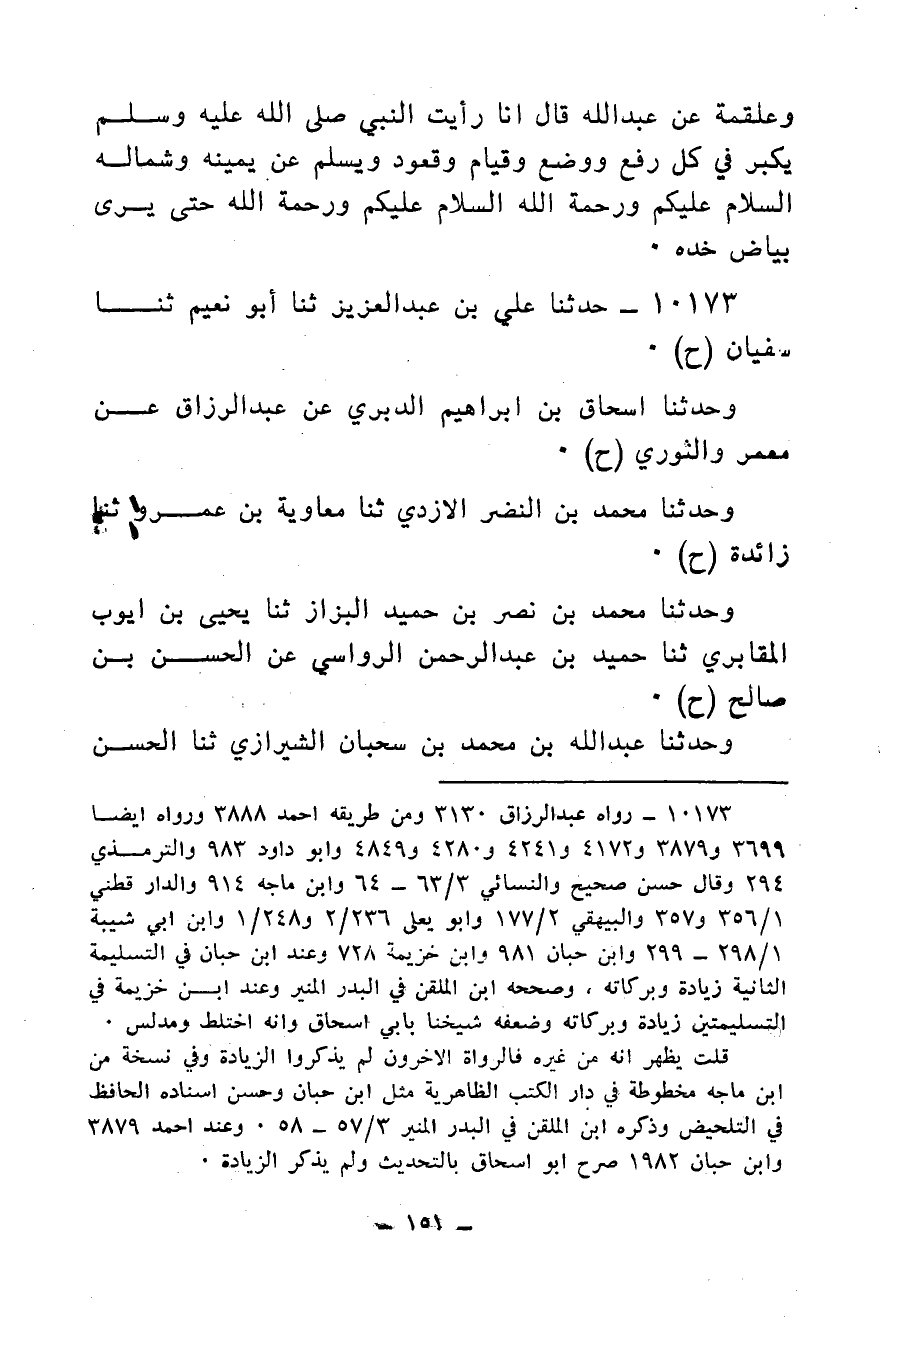 وعلقمة عن عبدالله قال انا رأيت النبي صلى الله عليه وسلم
يكبر في كل رفع ووضع وقيام وقعود ويسلم عن يمينه وشماله
السلام عليكم ورحمة الله السلام عليكم ورحمة الله حتى يرى
بياض خده ٠
١٠١٧٣ ـ حدثنا علي بن عبدالعزيز ثنا أبو نعيم ثنا
سفيان (ح) ٠
وحدثنا اسحاق بن ابراهيم الدبري عن عبدالرزاق عن
معمر والثوري (ح) ٠
وحدثنا محمد بن النضر الازدي ثنا معاوية بن عمرو ثنا
زائدة (ح) ٠
وحدثنا محمد بن نصر بن حميد البزاز ثنا يحيى بن ايوب
المقابري ثنا حميد بن عبدالرحمن الرواسي عن الحسن بن
صالح (ح) ٠
وحدثنا عبدالله بن محمد بن سحبان الشيرازي ثنا الحسن
١٠١٧٣ ـ رواه عبدالرزاق ٣١٣٠ ومن طريقه احمد ٣٨٨٨ ورواه ايضا
٣٦٩٩ و٣٨٧٩ و٤١٧٢ و٤٢٤١ و٤٢٨٠ و٤٨٤٩ وابو داود ٩٨٣ والترمذي
٢٩٤ وقال حسن صحيح والنسائي ٦٣/٣ ـ ٦٤ وابن ماجه ٩١٤ والدار قطني
٣٥٦/١ و٣٥٧ والبيهقي ١٧٧/٢ وابو يعلى ٢/٢٣٦ و١/٢٤٨ وابن ابي شيبة
٢٩٨/١ ـ ٢٩٩ وابن حبان ٩٨١ وابن خزيمة ٧٢٨ وعند ابن حبان في التسليمة
الثانية زيادة وبركاته ، وصححه ابن الملقن في البدر المنير وعند ابن خزيمة في
التسليمتين زيادة وبركاته وضعفه شيخنا بابي اسحاق وانه اختلط ومدلس ٠
قلت يظهر انه من غيره فالرواة الاخرون لم يذكروا الزيادة وفي نسخة من
ابن ماجه مخطوطة في دار الكتب الظاهرية مثل ابن حبان وحسن اسناده الحافظ
في التلحيض وذكره ابن الملقن في البدر المنير ٥٧/٣ ـ ٥٨ ٠ وعند احمد ٣٨٧٩
وابن حبان ١٩٨٢ صرح ابو اسحاق بالتحديث ولم يذكر الزيادة ٠
ـ ١٥١ ـ